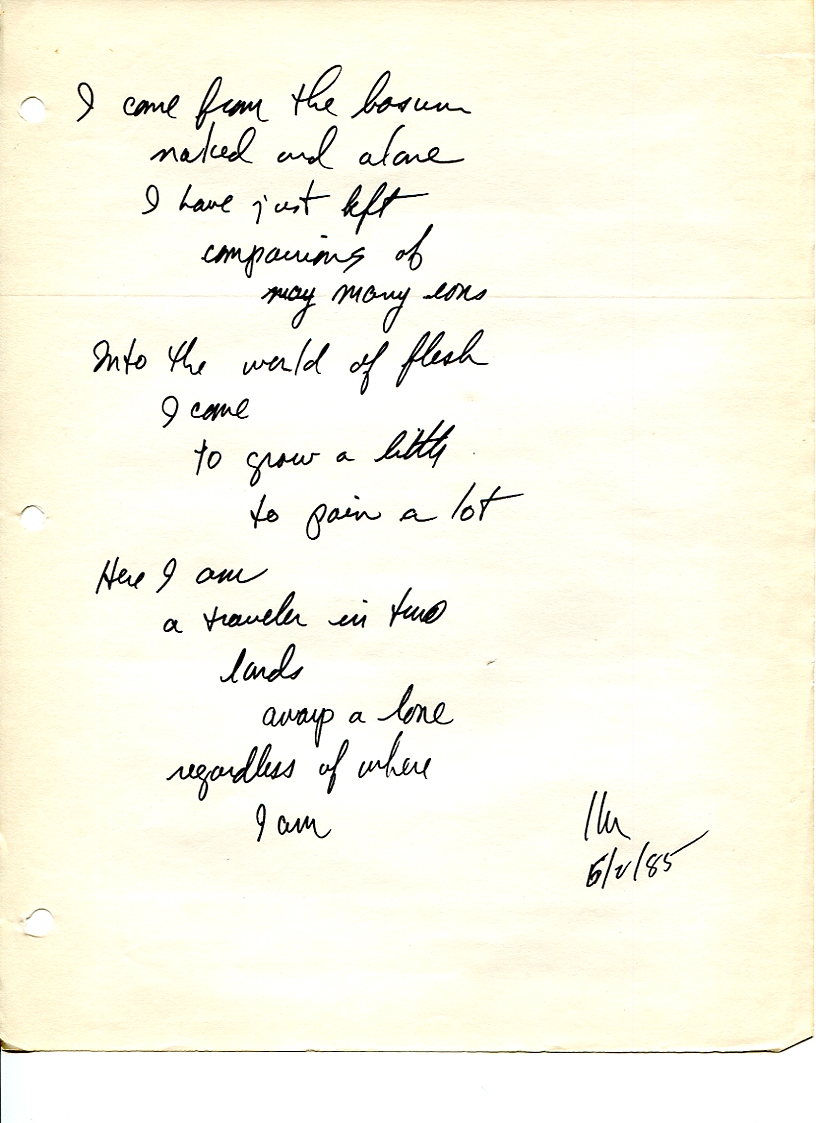 I come from the bosum
naked and alone
I have just left
companions of
may many eons
Into the world of flesh
I come
to grow a little
to pain a lot
Here I am
a traveler in two
lands
always a lone
regardless of where
I am
5/2/85